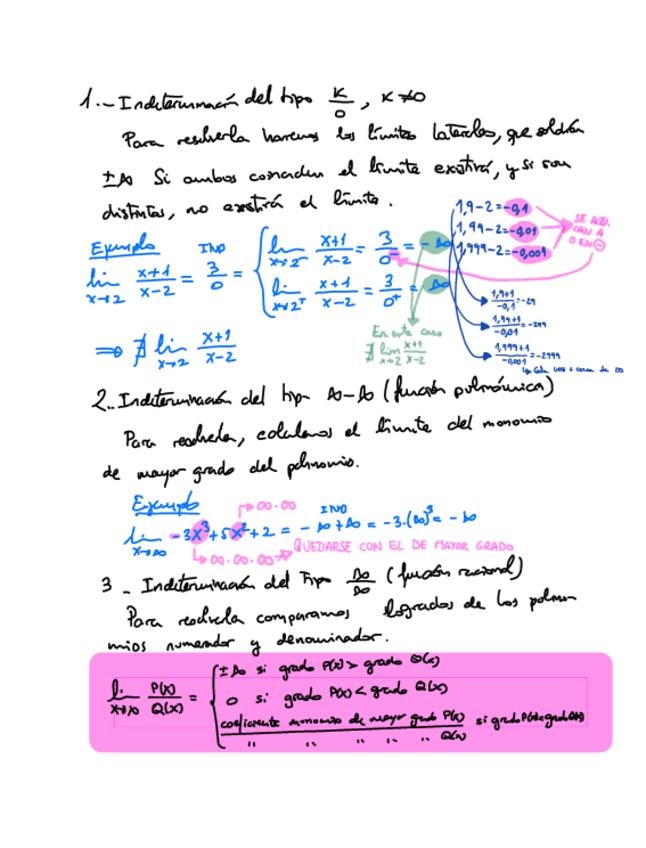 1.- Indeterminación del tipo K/0, K≠0
Para resolverla haremos los límites laterales, que saldrán
±∞ Si ambos coinciden el límite existirá, y si son
distintos, no existirá el límite.
Ejemplo IND
lim x→2 x+1/x-2 = 3/0 =
lim x→2⁻ x+1/x-2 = 3/0⁻ = -∞
lim x→2⁺ x+1/x-2 = 3/0⁺ = ∞
1,9-2=-0,1
1,99-2=-0,01
1,999-2=-0,001
SE ACER
CAN A
0 EN ⊖
1,9+1/-0,1=-29
1,99+1/-0,01=-299
1,999+1/-0,001=-2999
↳ Cada vez + cerca de ∞
En este caso
∄ lim x→2 x+1/x-2
⇒ ∄ lim x→2 x+1/x-2
2.- Indeterminación del tipo ∞-∞ (función polinómica)
Para resolverla, calculamos el límite del monomio
de mayor grado del polinomio.
Ejemplo
→∞·∞ IND
lim x→∞ -3x³+5x²+2 = -∞+∞ = -3·(∞)³ = -∞
↳∞·∞·∞→ QUEDARSE CON EL DE MAYOR GRADO
3- Indeterminación del Tipo ∞/∞ (función racional)
Para resolverla comparamos los grados de los polino
mios numerador y denominador.
lim x→∞ P(x)/Q(x) =
±∞ si grado P(x) > grado Q(x)
0 si grado P(x) < grado Q(x)
coeficiente monomio de mayor grado P(x) si grado P(x)=grado Q(x)
" " " " " Q(x)